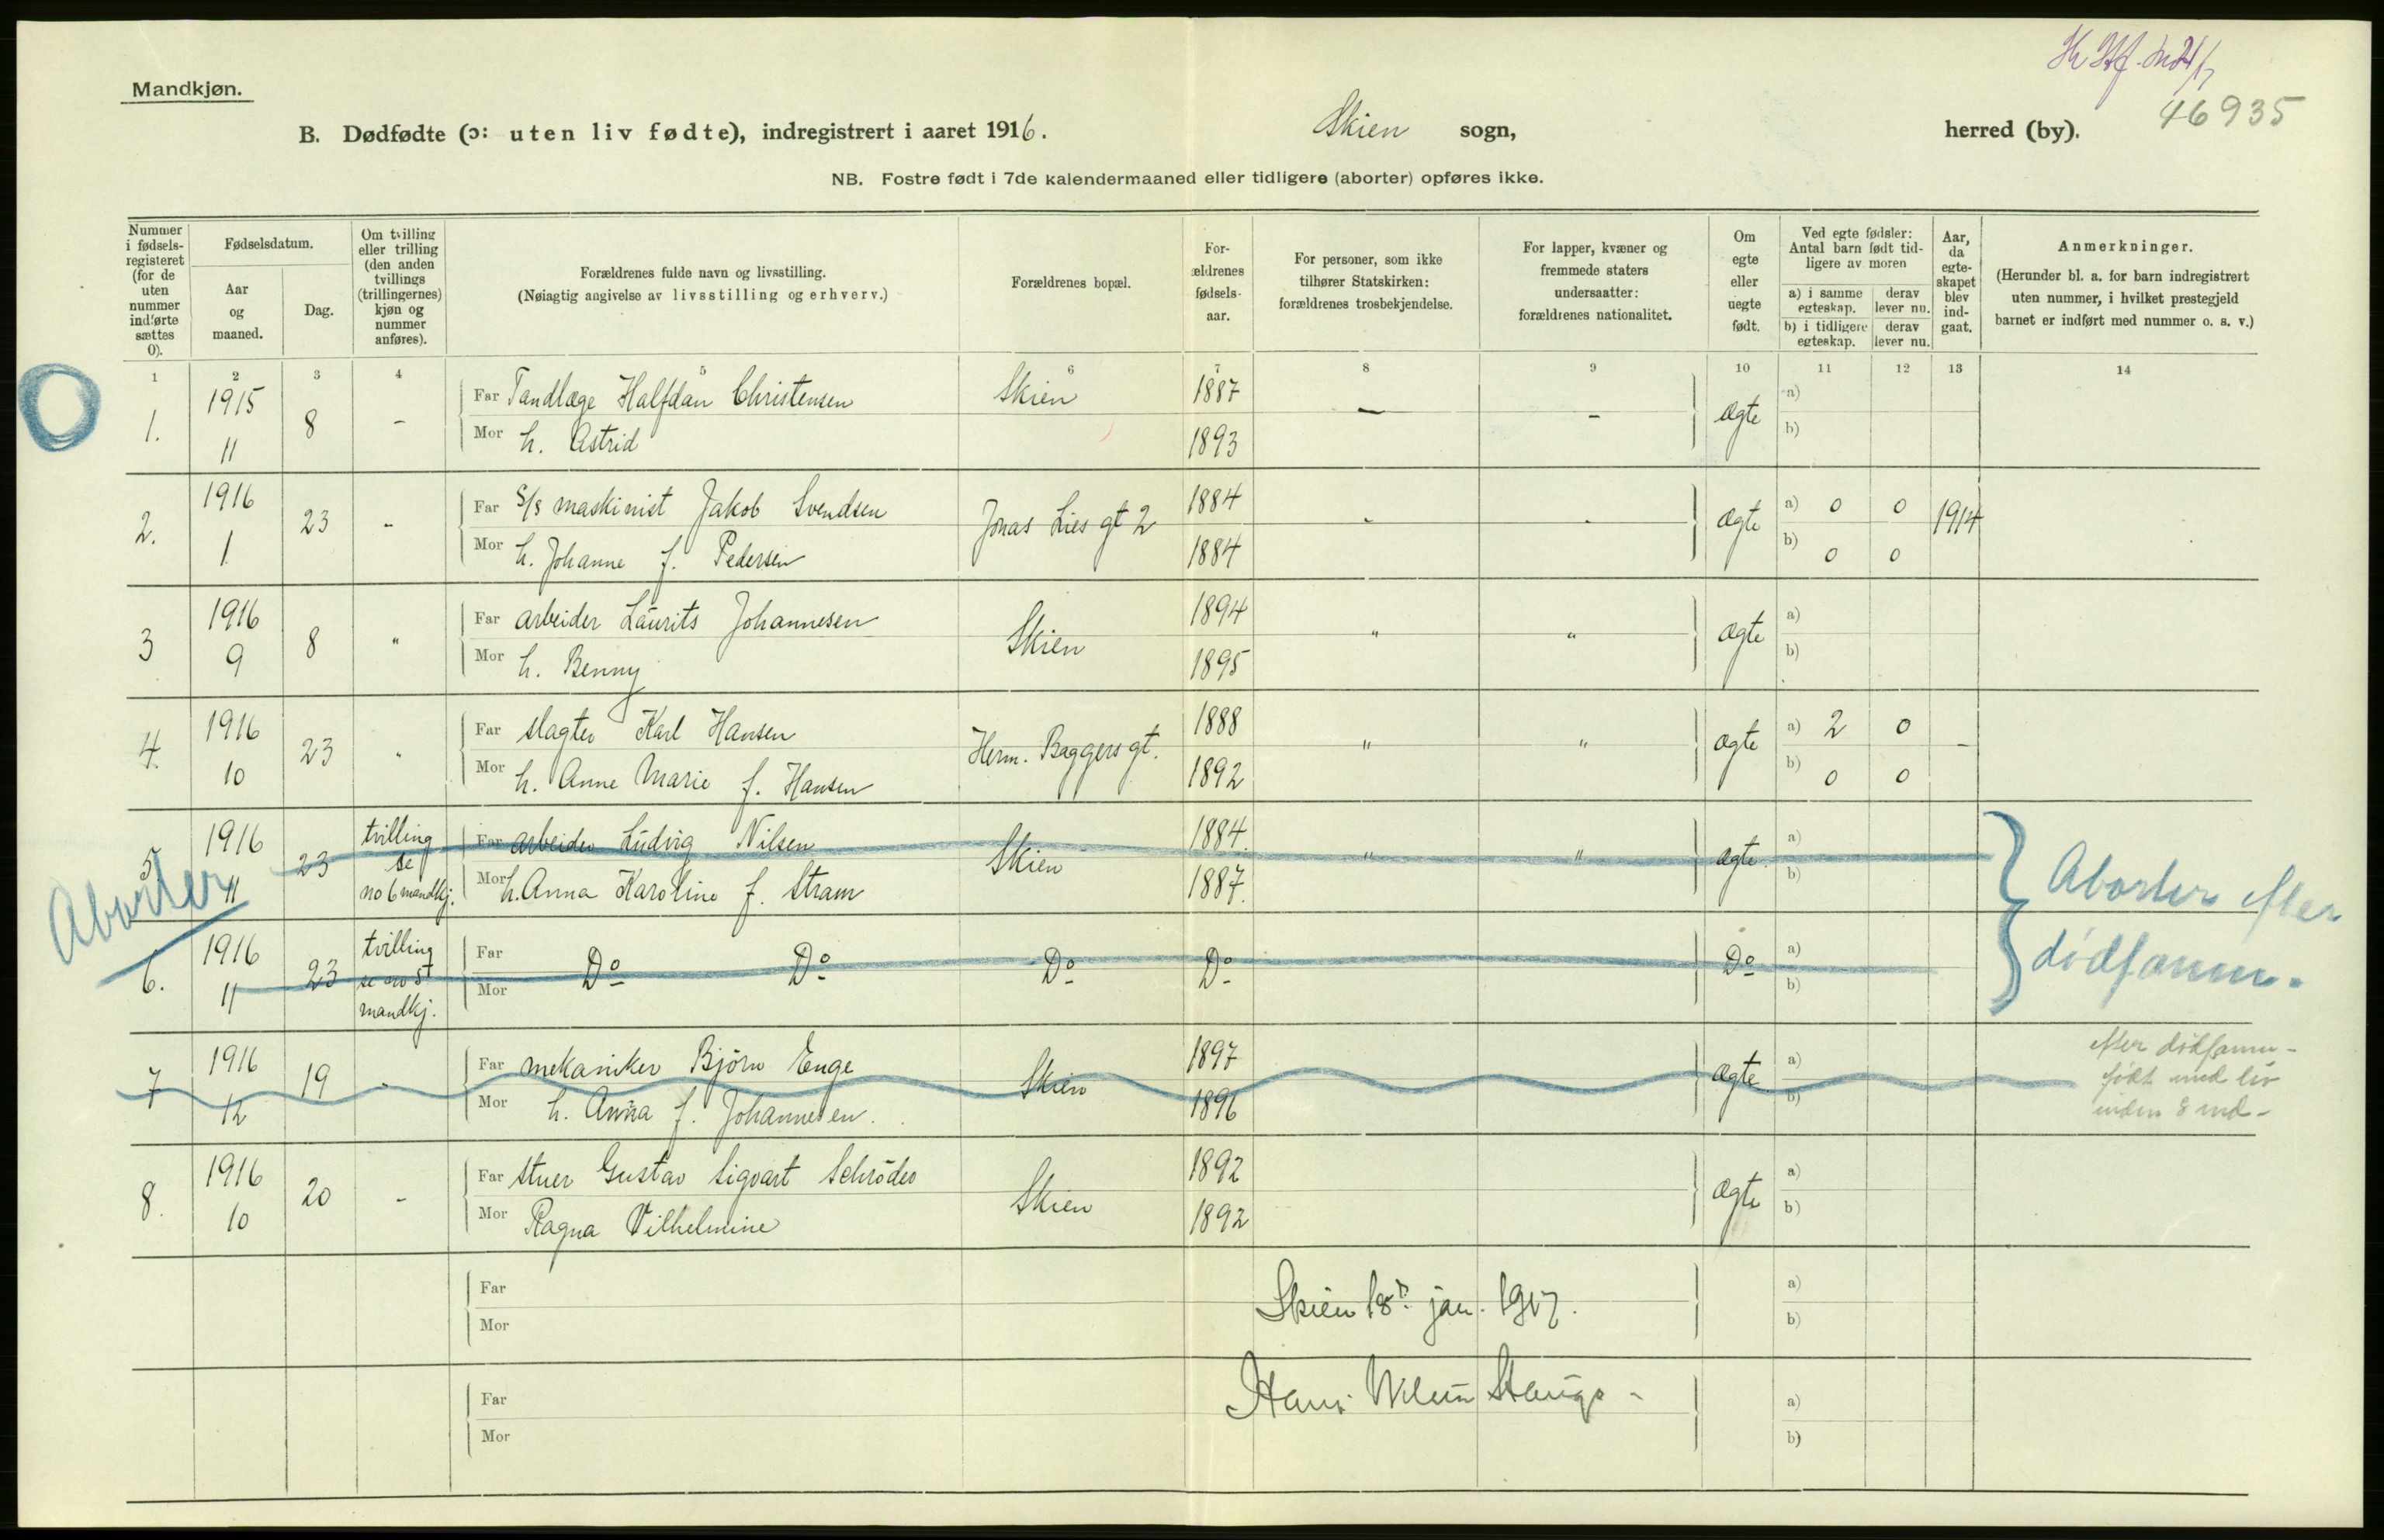 Mandkjøn.
46935
B. Dødfødte (ɔ: uten liv fødte), indregistrert i aaret 1916. Skien sogn, herred (by).
NB. Fostre født i 7de kalendermaaned eller tidligere (aborter) opføres ikke.
Nummer i fødsels-registeret (for de uten nummer indførte sættes 0).
Fødselsdatum.
Aar og maaned.
Dag.
Om tvilling eller trilling (den anden tvillings (trillingernes) kjøn og nummer anføres).
Forældrenes fulde navn og livsstilling.
(Nøiagtig angivelse av livsstilling og erhverv.)
Forældrenes bopæl.
For-ældrenes fødsels-aar.
For personer, som ikke tilhører Statskirken: forældrenes trosbekjendelse.
For lapper, kvæner og fremmede staters undersaatter: forældrenes nationalitet.
Om egte eller uegte født.
Ved egte fødsler: Antal barn født tid-ligere av moren
a) i samme egteskap. derav lever nu.
b) i tidligere egteskap. derav lever nu.
Aar, da egte-skapet blev ind-gaat.
Anmerkninger.
(Herunder bl. a. for barn indregistrert uten nummer, i hvilket prestegjeld barnet er indført med nummer o. s. v.)
1 2 3 4 5 6 7 8 9 10 11 12 13 14
1. 1915 11 8 - Far Tandlæge Halfdan Christensen Skien 1887 - - Ægte a)
Mor h. Astrid 1893 b)
2. 1916 1 23 - Far S/S maskinist Jakob Svendsen Jonas Lies gt 2 1884 - - Ægte a) 0 0 1914
Mor h. Johanne f. Pedersen 1884 b) 0 0
3 1916 9 8 " Far arbeider Laurits Johannesen Skien 1894 " " Ægte a)
Mor h. Benny 1895 b)
4. 1916 10 23 " Far slagter Karl Hansen Herm. Baggers gt. 1888 " " Ægte a) 2 0 -
Mor h. Anne Marie f. Hansen 1892 b) 0 0
5. 1916 11 23 tvilling se no 6 mandkj. Far arbeider Ludvig Nilsen Skien 1884 " " Ægte a)
Mor h. Anna Karoline f. Stram 1887. b)
Aborter
Aborter efter
dødfanm.
6. 1916 11 23 tvilling se no 5 mandkj. Far Do Do Do Do Do a)
Mor b)
7 1916 12 19 - Far mekaniker Bjørn Enge Skien 1897 Ægte a)
Mor h. Anna f. Johannesen. 1896 b)
efter dødfanm-
født med liv
inden 8 md-
8. 1916 10 20 - Far stuer Gustav Sigvart Schrøder Skien 1892 Ægte a)
Mor Ragna Vilhelmine 1892 b)
Far a)
Skien 18. jan. 1917.
Mor b)
Far a)
Mor b)